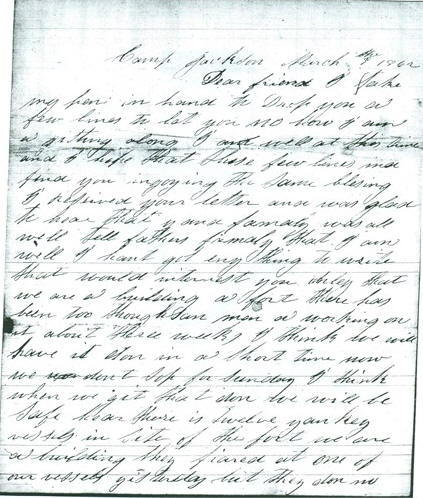 Camp Jackson March the 1862
Dear friend I take
my pen in hand to Drop you a
few lines to let you no how I am
a gitting along I am well at this time
and I hope that these few lines may
find you injoying the same blesing
I reseived your letter and was glad
to hear that you and family was all
well tell fathers family that I am
well I hant got eny thing to write
that would interest you only that
we are a building a fort there has
been too thoughsan men a working on
it about three weeks I think we will
have it don in a short time now
we don't stop for sunday I think
when we git that don we will be
safe hear there is twelve yankey
vessels in site of the fort we are
a building they fiared at one of
our vessels yisterday but they don no